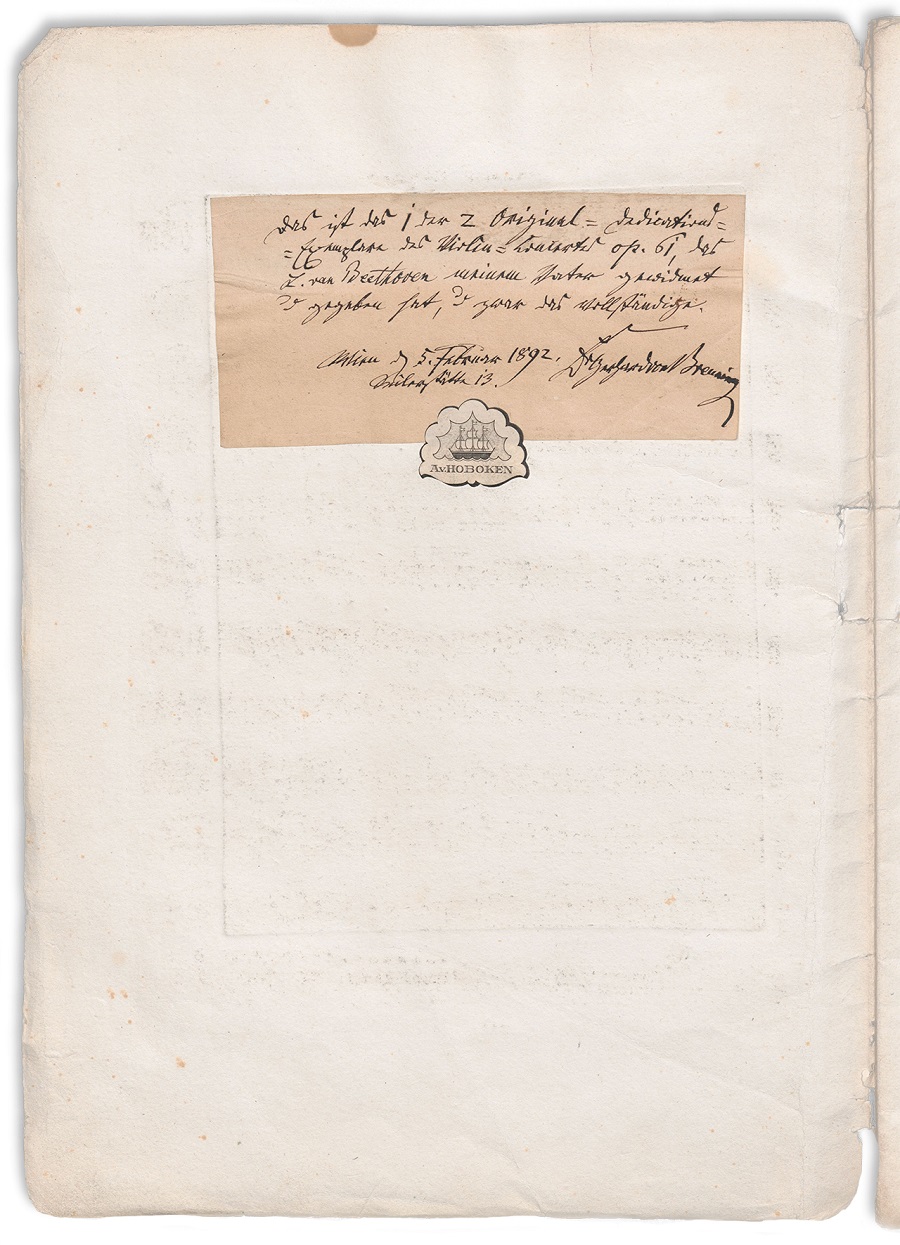 Das ist das 1 der 2 Original=Dedications=
=Exemplare des Violin=Concertes op. 61, das
L. van Beethoven meinem Vater gewidmet
u gegeben hat, u zwar das vollständige.
Wien d 5. Februar 1892. Dr Gerhard von Breuning
Seilerstätte 13.
A.v.HOBOKEN